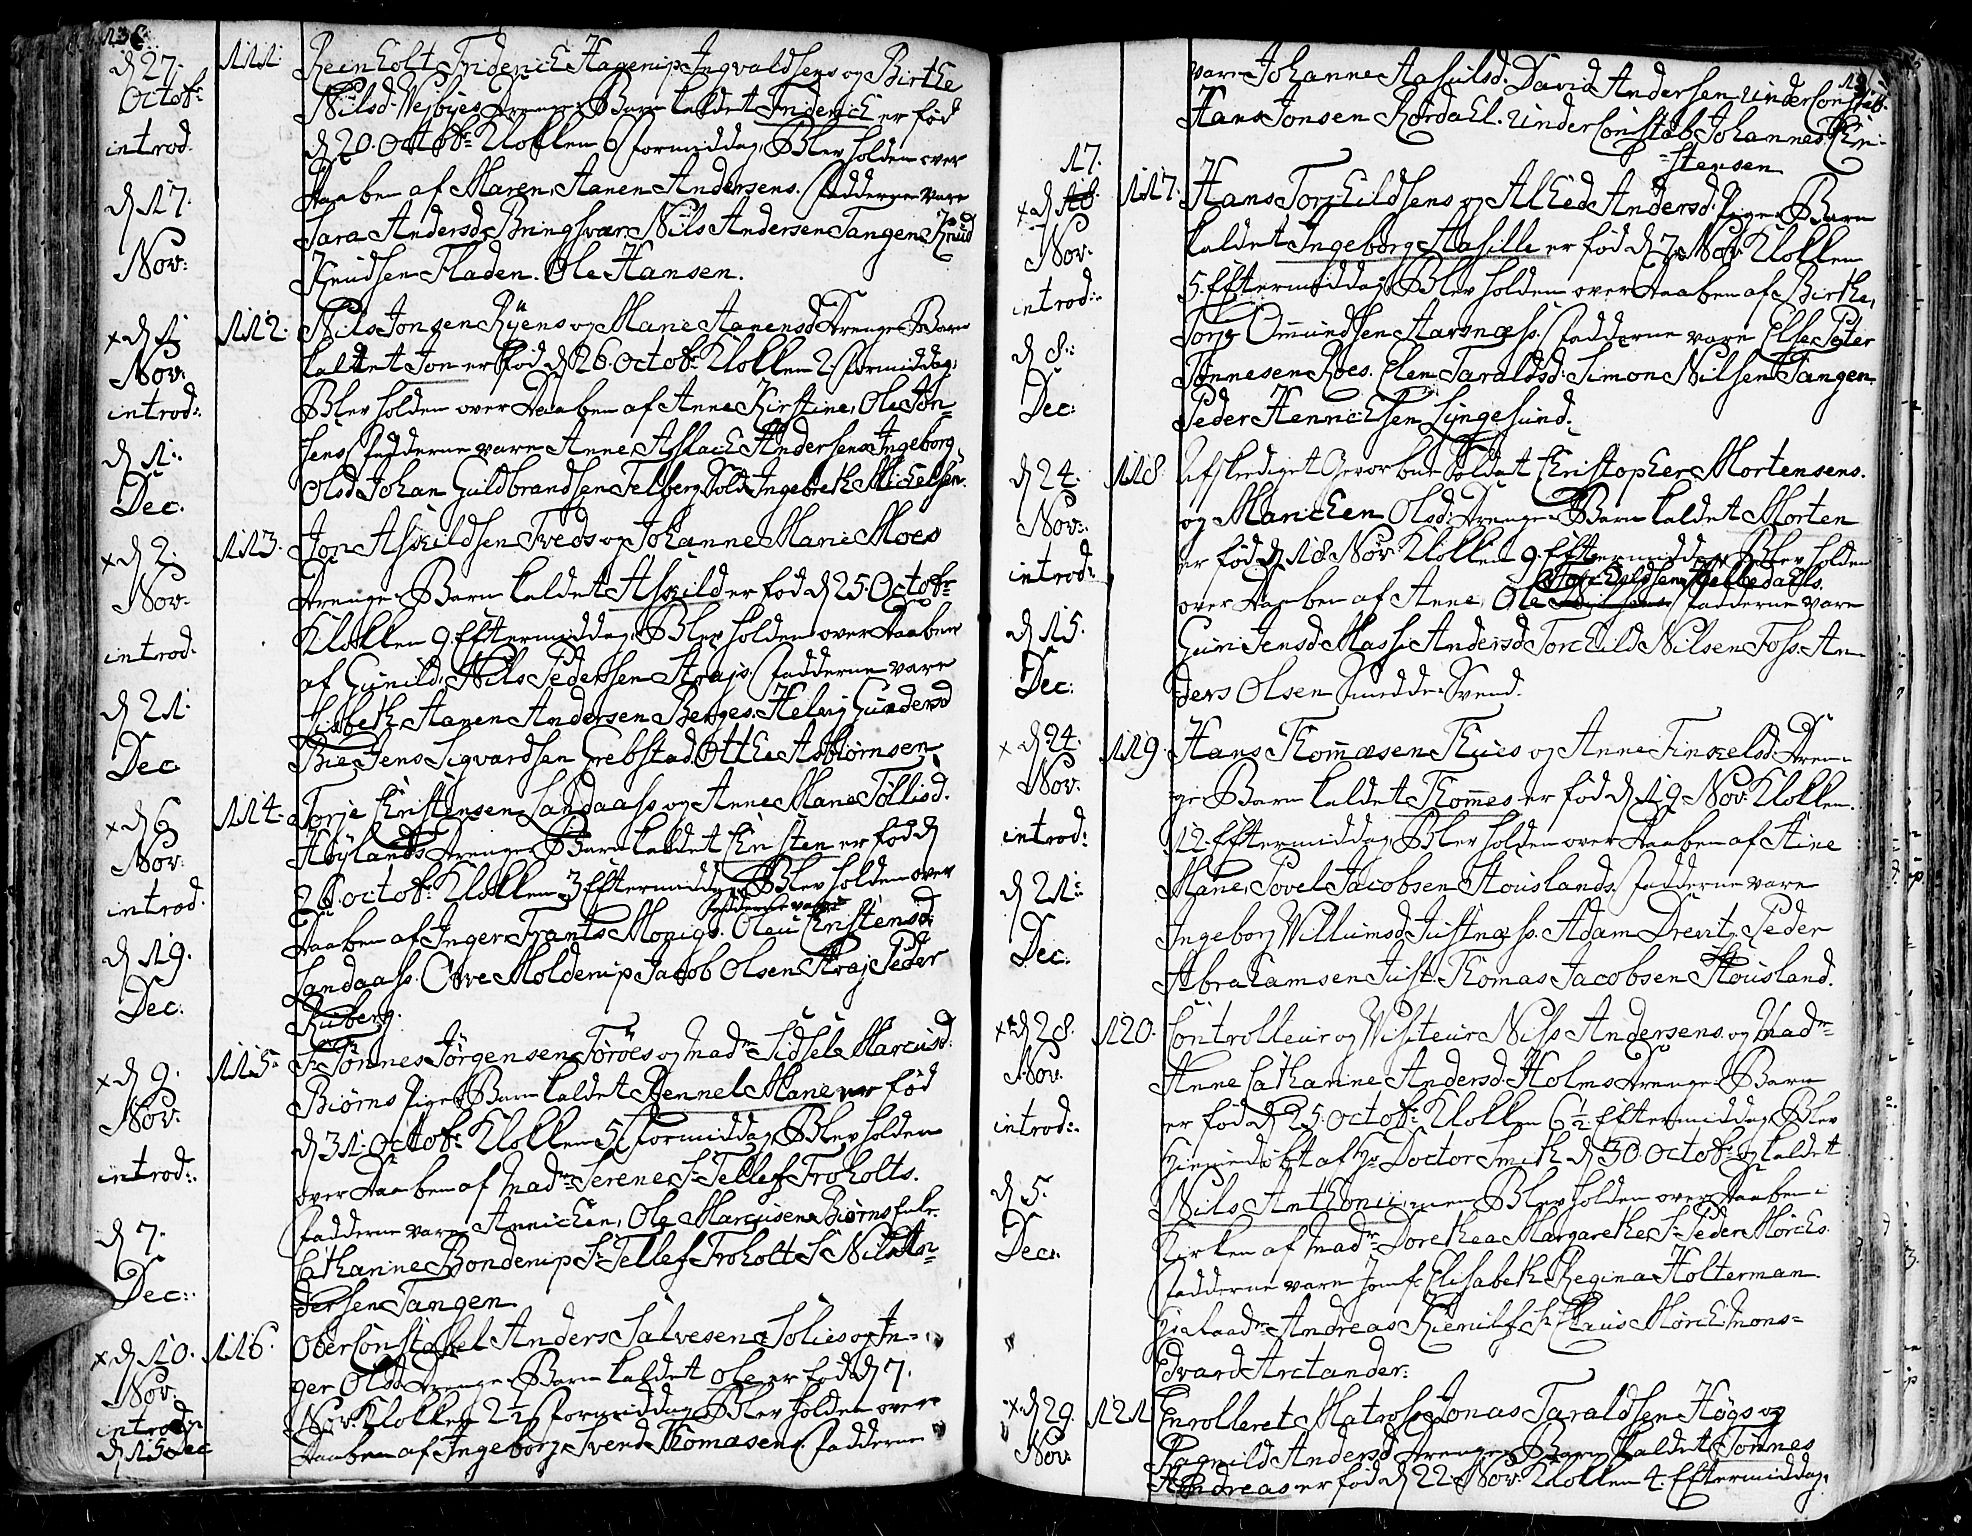 136.
d 27. Octob: introd. d 17. Nov:
111.
Reinholt Friderich Hagerup Ingvaldsens og Birthe
Nilsd: Vejbyes Drenge-Barn kaldet Friderich er fød
d 20. Octob: Klokken 6 formiddag, Blev holden over
Daaben af Maren, Aanen Andersens. Fadderne vare
Sara Andersd: Bringsvær Nils Andersen Tangen Knud
Knudsen Fladen. Ole Hansen.
x d 1. Nov: introd: d 1: Dec.
112.
Nils Jonsen Ryens og Marie Aanensd Drenge-Barn
kaldet Jon er fød d 26. Octob: Klokken 2. formiddag,
Blev holden over Daaben af Anne Kirstine, Ole Jon=
sens. Fadderne vare Anne, Asslach Andersens Ingeborg
Olsd Johan Guldbrandsen Felberg Sold: Ingebreth Michelsen.
x d 2. Nov: introd. d 21. Dec
113.
Jon Askildsen Tveds og Johanne Marie Moes
Drenge-Barn kaldet Askild er fød d 25. Octob:
Klokken 9. Eftermiddag, Blev holden over Daaben
af Gunild, Nils Pedersen Strajs. Fadderne vare
Lisbeth, Aanen Andersen Berges. Helvig Gundersd
Bie Jens Sigvardsen Grebstad. Otthe Asbiørnsen
x d 6 Nov: introd. d 19. Dec:
114.
Torje Christensen Sandaass og Anne Marie Tøllisd.
Høylands Drenge-Barn kaldet Christen er fød d
26. octob: Klokken 3 Eftermiddag, Blev holden over
Fadderne vare
Daaben af Inger, Frants Monigs. Oleu Christensd:
Sandaass. Ove Molderup Jacob Olsen Straj Peder
Ruberg.
x d 9. Nov: introd: d 7. Dec:
115.
Sr Tønnes Jørgensen Torøes og Madm Sidsele Marcusd.
Biørns Pige-Barn kaldet Pennel Marie er fød
d 31. Octob: Klokken 5. formiddag, Blev holden
over Daaben af Madm Serene, Sr Tellef Froholts.
Fadderne vare Annichen, Ole Marcusens Biørns
Cathanine Bonderup Sr Tellef Froholt Sr Nils An=
dersen Tangen
x d 10. Nov. introd: d 15 Dec
116.
Ober Constabel Anders Salvesens Solies og In=
ger Olsd: Drenge-Barn kaldet Ole er fød d 7.
Nov: Klokken 2 1/2 formiddag, Blev holden over
Daaben af Ingeborg, Svend Thomasens. Fadderne
vare Johanne Aasulsd. David Andersen Under Constab:
Hans Jonsen Rørdahl. Under Constab: Johannes Chri=
=stensen
17.
x d 16. Nov: introd: d 8: Dec:
117.
Hans Torchildsens og Alhed Andersd. Pige-Barn
kaldet Ingeborg Aasille er fød d 7. Nov: Klokken
5. Eftermiddag, Blev holden over Daaben af Birthe,
Torje Omundsen Aarsness. Fadderne vare Else, Peter
Tønnesen Roes. Elen Taraldsd: Simon Nilsen Tangen
Peder Henrichsen Lyngesund.
d 24. Nov: introd: d 15. Dec:
118
Afskediget Gevorben Soldat Christopher Mortensens.
og Marichen Olsd: Drenge-Barn kaldet Morten
er fød d 18. Nov: Klokken 9. Eftermiddag, Blev holden
Helledalls.
over Daaben af Anne, Ole Fadderne vare
Guri Jensd: Massi Andersd Torchild Nilsen Foss. An=
ders Olsen Smedde-Svend.
x d 24. Nov. introd: d 21: Dec:
119.
Hans Thommæsen Thues og Anne Finkelsd: Dren=
ge-Barn kaldet Thommes er fød d 19. Nov: Klokken
12. Eftermiddag, Blev holden over Daaben af Stine
Marie, Povel Jacobsen Stouslands. Fadderne vare
Ingeborg Villumsd Justnæss. Adam Drevitz. Peder
Abrahamsen Just: Thomas Jacobsen Stousland.
x d 28. Nov: introd: d 5. Dec:
120.
Controlleur og Visiteur Nils Andersens. og Madm
Anne Cathanine Andersd: Holms Drenge-Barn
er fød d 25. Octob: Klokken 6 1/2 Eftermiddag, Blev
Hiemedøbt af Hr Doctor Smith d 30. Octob: og kaldet
Nils Anthoni, men Blev holden over Daaben i
Kirken af Madm Dorethea Margarethe, Sr Peder Mørchs.
Fadderne vare Jomfr: Elisabeth Regina Holterman.
Andreas Kierulf Sr Claus Mørch Mons=
Edvard Arctander.
x d 29. Nov:
121
Enrolleret Matros Jonas Taraldsen Høgs og
Ragnild Andersd Drenge-Barn kaldet Tønnes
Andreas er fød d 22. Nov: Klokken 4. Eftermiddag,